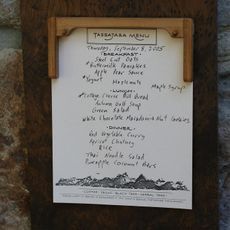 TASSAJARA MENU
Thursday, September 8, 2005
BREAKFAST
Steel Cut Oats
*Buttermilk Pancakes
Apple Pear Sauce
*Yogurt Maplenuts Maple Syrup
LUNCH
*Cottage Cheese Dill Bread
Autumn Dahl Soup
Green Salad
White Chocolate Macadamia Nut Cookies
DINNER
Red Vegetable Curry
Apricot Chutney
Rice
Thai Noodle Salad
Pineapple Coconut Bars
COFFEE DECAF BLACK TEAS HERBAL TEAS